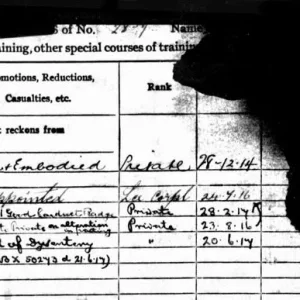 s of No. 2809 Name
ining, other special courses of training
omotions, Reductions,
Casualties, etc.
Rank
reckons from
Embodied Private 28-12-14
Appointed Lce Corpl 24.7.16
Good Conduct Badge Private 28.2.17
Private on alteration Private 23.8.16
of Dysentery " 20.6.17
BX 50273 d 21.6.17)